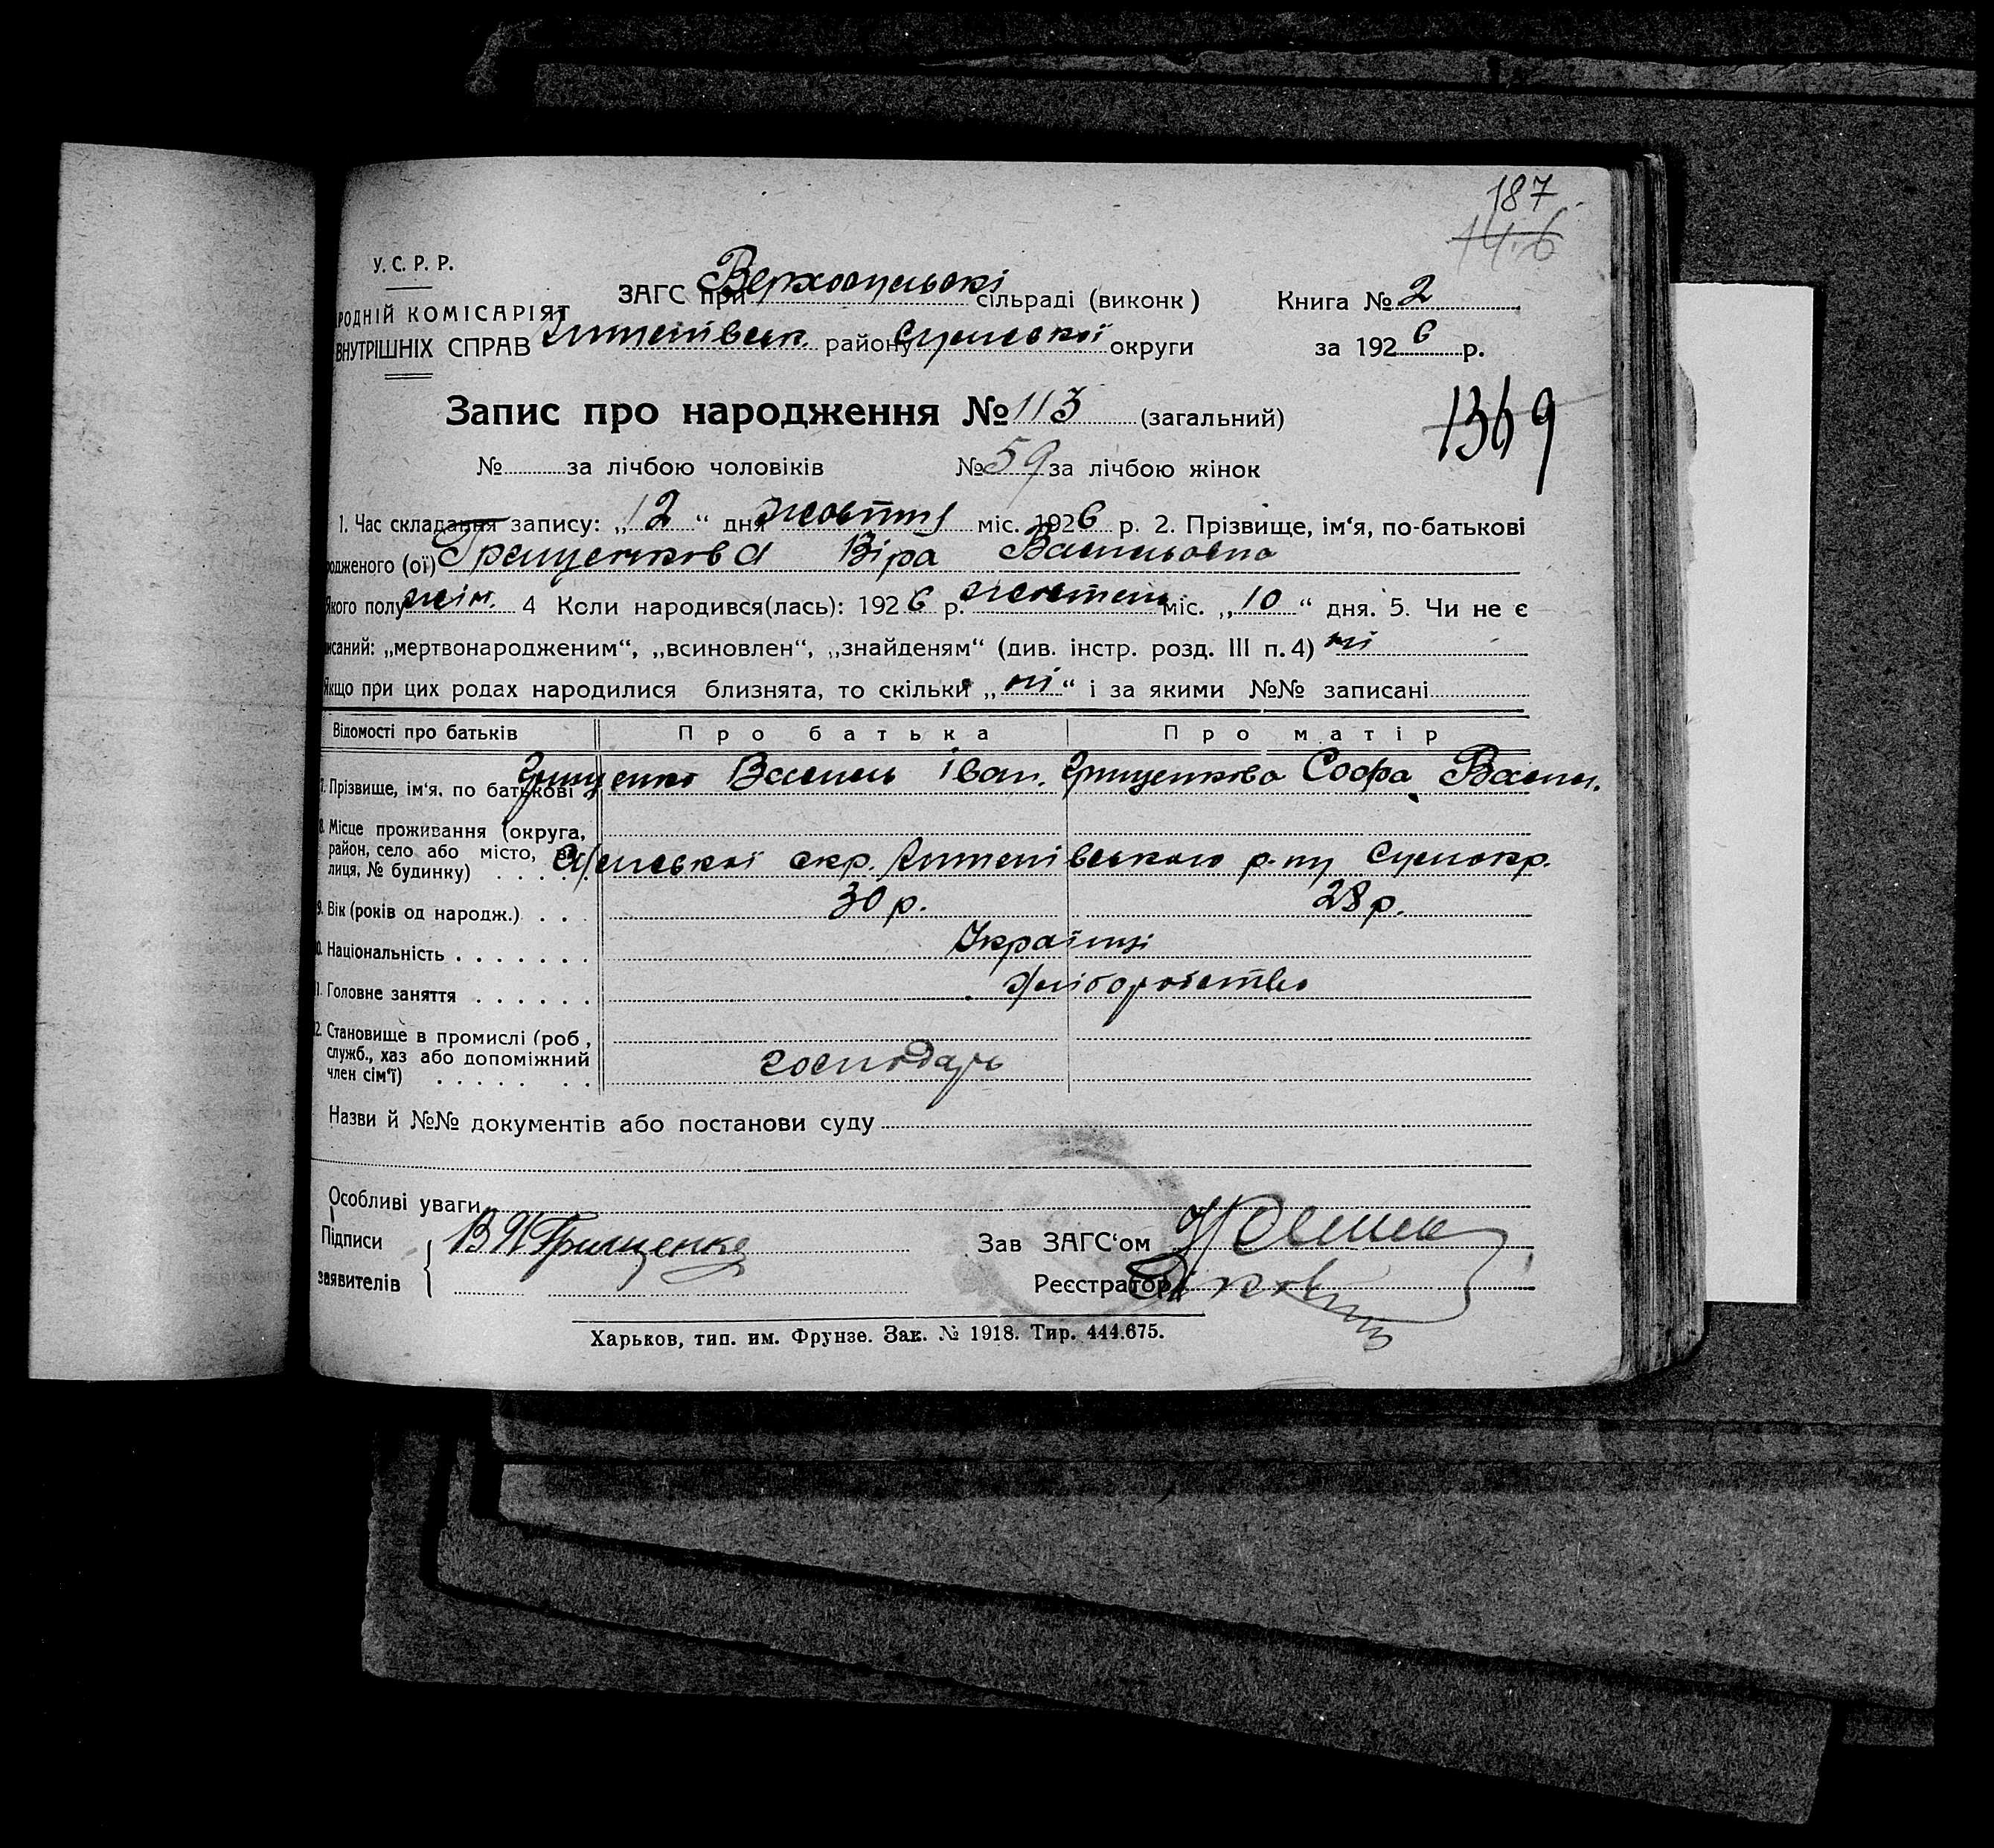 187
146
У. С. Р. Р.
РОДНІЙ КОМІСАРІЯТ
ВНУТРІШНІХ СПРАВ
ЗАГС при Верхосульські сільраді (виконк) Книга № 2
району Сумської округи за 1926 р.
Запис про народження № 113 (загальний)
1369
№ за лічбою чоловіків № 59 за лічбою жінок
1. Час складання запису: „12“ дня жовтня міс. 1926 р. 2. Прізвище, ім‘я, по-батькові
одженого (ої) Грищенкова Віра Васильовна
Якого полу жін. 4 Коли народився(лась): 1926 р. жовтень міс. „10“ дня. 5. Чи не є
исаний: „мертвонародженим“, „всиновлен“, „знайденям“ (див. інстр. розд. III п. 4) ні
Якщо при цих родах народилися близнята, то скільки „ні“ і за якими №№ записані
Відомості про батьків Про батька Про матір
7. Прізвище, ім‘я, по батькові Грищенко Василь Іван. Грищенкова Софа Васил.
8. Місце проживання (округа,
район, село або місто, ву
лиця, № будинку) Сумської окр. р-ну Сумокр.
9. Вік (років од народж.) 30 р. 28 р.
0. Національність Українці
1. Головне заняття Хліборобство
2. Становище в промислі (роб,
служб., хаз або допоміжний
член сім‘ї) господарь
Назви й №№ документів або постанови суду
Особливі уваги
Підписи
заявителів
В И Грищенко
Зав ЗАГС‘ом
Реєстратор
Харьков, тип. им. Фрунзе. Зак. № 1918. Тир. 444.675.